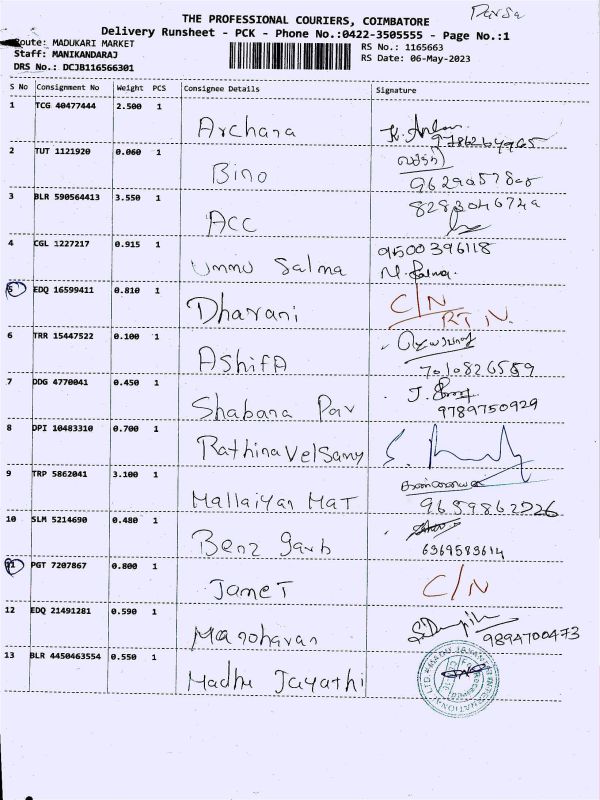 THE PROFESSIONAL COURIERS, COIMBATORE
Delivery Runsheet - PCK - Phone No.:0422-3505555 - Page No.:1
Route: MADUKARI MARKET
RS No.: 1165663
Staff: MANIKANDARAJ
RS Date: 06-May-2023
DRS No.: DCJB116566301
S No Consignment No Weight PCS Consignee Details Signature
1 TCG 40477444 2.500 1
Archana
2 TUT 1121920 0.060 1
Bino
3 BLR 590564413 3.550 1
8283046749
ACC
4 CGL 1227217 0.915 1
9500396118
Ummu Salma M. Salma.
5 EDQ 16599411 0.810 1
Dharani C/N
6 TRR 15447522 0.100 1
AShifA 7010826559
7 DDG 4770041 0.450 1
Shabana Par 9789750929
8 DPI 10483310 0.700 1
RathinaVelSamy
9 TRP 5862041 3.100 1
Mallaiyan MaT
10 SLM 5214690 0.480 1
Benz garb 6369583614
11 PGT 7207867 0.800 1
JaneT C/N
12 EDQ 21491281 0.590 1
Manoharan 9894700473
13 BLR 4450463554 0.550 1
Madhu Jayathi